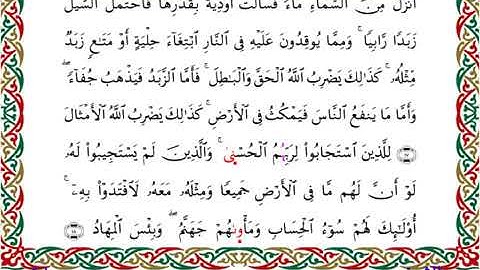 أَنزَلَ مِنَ ٱلسَّمَآءِ مَآءً فَسَالَتْ أَوْدِيَةٌۢ بِقَدَرِهَا فَٱحْتَمَلَ ٱلسَّيْلُ
زَبَدًا رَّابِيًا ۚ وَمِمَّا يُوقِدُونَ عَلَيْهِ فِى ٱلنَّارِ ٱبْتِغَآءَ حِلْيَةٍ أَوْ مَتَٰعٍ زَبَدٌ
مِّثْلُهُۥ ۚ كَذَٰلِكَ يَضْرِبُ ٱللَّهُ ٱلْحَقَّ وَٱلْبَٰطِلَ ۚ فَأَمَّا ٱلزَّبَدُ فَيَذْهَبُ جُفَآءً ۖ
وَأَمَّا مَا يَنفَعُ ٱلنَّاسَ فَيَمْكُثُ فِى ٱلْأَرْضِ ۚ كَذَٰلِكَ يَضْرِبُ ٱللَّهُ ٱلْأَمْثَالَ
۝١٧ لِلَّذِينَ ٱسْتَجَابُوا۟ لِرَبِّهِمُ ٱلْحُسْنَىٰ ۚ وَٱلَّذِينَ لَمْ يَسْتَجِيبُوا۟ لَهُۥ
لَوْ أَنَّ لَهُم مَّا فِى ٱلْأَرْضِ جَمِيعًا وَمِثْلَهُۥ مَعَهُۥ لَٱفْتَدَوْا۟ بِهِۦٓ ۚ
أُو۟لَٰٓئِكَ لَهُمْ سُوٓءُ ٱلْحِسَابِ وَمَأْوَىٰهُمْ جَهَنَّمُ ۖ وَبِئْسَ ٱلْمِهَادُ ۝١٨